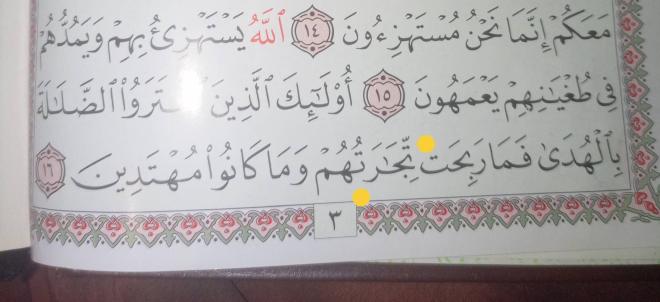 مَعَكُمْ إِنَّمَا نَحْنُ مُسْتَهْزِءُونَ ١٤ ٱللَّهُ يَسْتَهْزِئُ بِهِمْ وَيَمُدُّهُمْ
فِى طُغْيَٰنِهِمْ يَعْمَهُونَ ١٥ أُو۟لَٰٓئِكَ ٱلَّذِينَ ٱلضَّلَٰلَةَ
بِٱلْهُدَىٰ فَمَا رَبِحَت تِّجَٰرَتُهُمْ وَمَا كَانُوا۟ مُهْتَدِينَ ١٦
٣